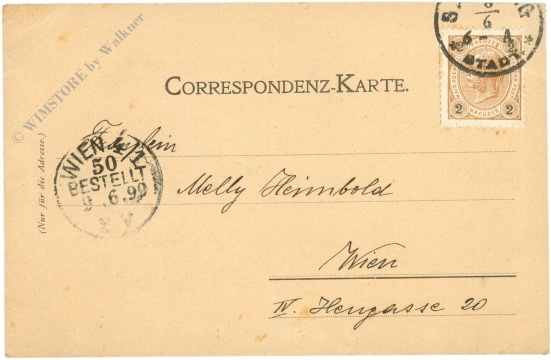 © WIMSTORE by Walkner
8
6
6 - A
* STADT. *
2 KREUZER 2
CORRESPONDENZ-KARTE.
(Nur für die Adresse.)
Fräulein
WIEN 4/1
50
BESTELLT
9. 6. 99
Melly Heimbold
Wien
IV. Heugasse 20